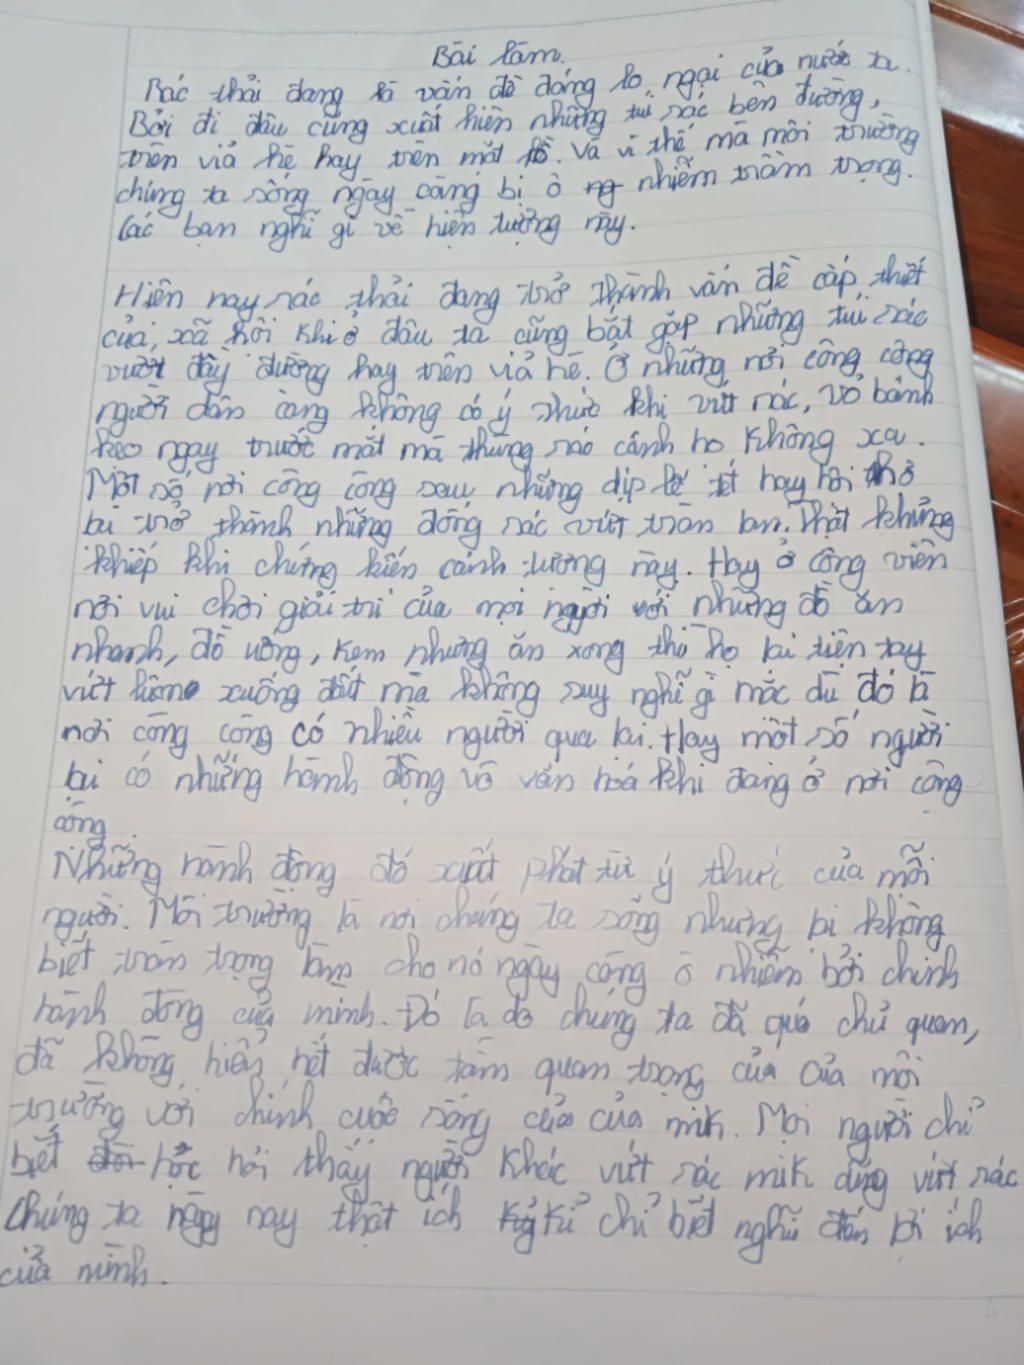 Bài làm.
Rác thải đang là vấn đề đáng lo ngại của nước ta.
Bởi đi đâu cũng xuất hiện những túi rác bên đường,
trên vỉa hè hay trên mặt hồ. Và vì thế mà môi trường
chúng ta sống ngày càng bị ô nhiễm trầm trọng.
Các bạn nghĩ gì về hiện tượng này.
Hiện nay rác thải đang trở thành vấn đề cấp thiết
của, xã hội khi ở đâu ta cũng bắt gặp những túi rác
vứt đầy đường hay trên vỉa hè. Ở những nơi công cộng
người dân càng không có ý thức khi vứt rác, vỏ bánh
kẹo ngay trước mắt mà thùng rác cách họ không xa.
Một số nơi công cộng sau những dịp lễ tết hay hội thở
lại trở thành những đống rác vứt tràn lan. Thật khủng
khiếp khi chứng kiến cảnh tượng này. Hay ở công viên
nơi vui chơi giải trí của mọi người với những đồ ăn
nhanh, đồ uống, kem nhưng ăn xong thì họ lại tiện tay
vứt luôn xuống đất mà không suy nghĩ gì mặc dù đó là
nơi công cộng có nhiều người qua lại. Hay một số người
lại có những hành động vô văn hoá khi đang ở nơi công
cộng.
Những hành động đó xuất phát từ ý thức của mỗi
người. Môi trường là nơi chúng ta sống nhưng lại không
biết trân trọng làm cho nó ngày càng ô nhiễm bởi chính
hành động của mình. Đó là do chúng ta đã quá chủ quan,
đã không hiểu hết được tầm quan trọng của của môi
trường với chính cuộc sống của của mik. Mọi người chỉ
biết học hỏi thấy người khác vứt rác mik cũng vứt rác
Chúng ta ngày nay thật ích kỉ chỉ biết nghĩ đến lợi ích
của mình.